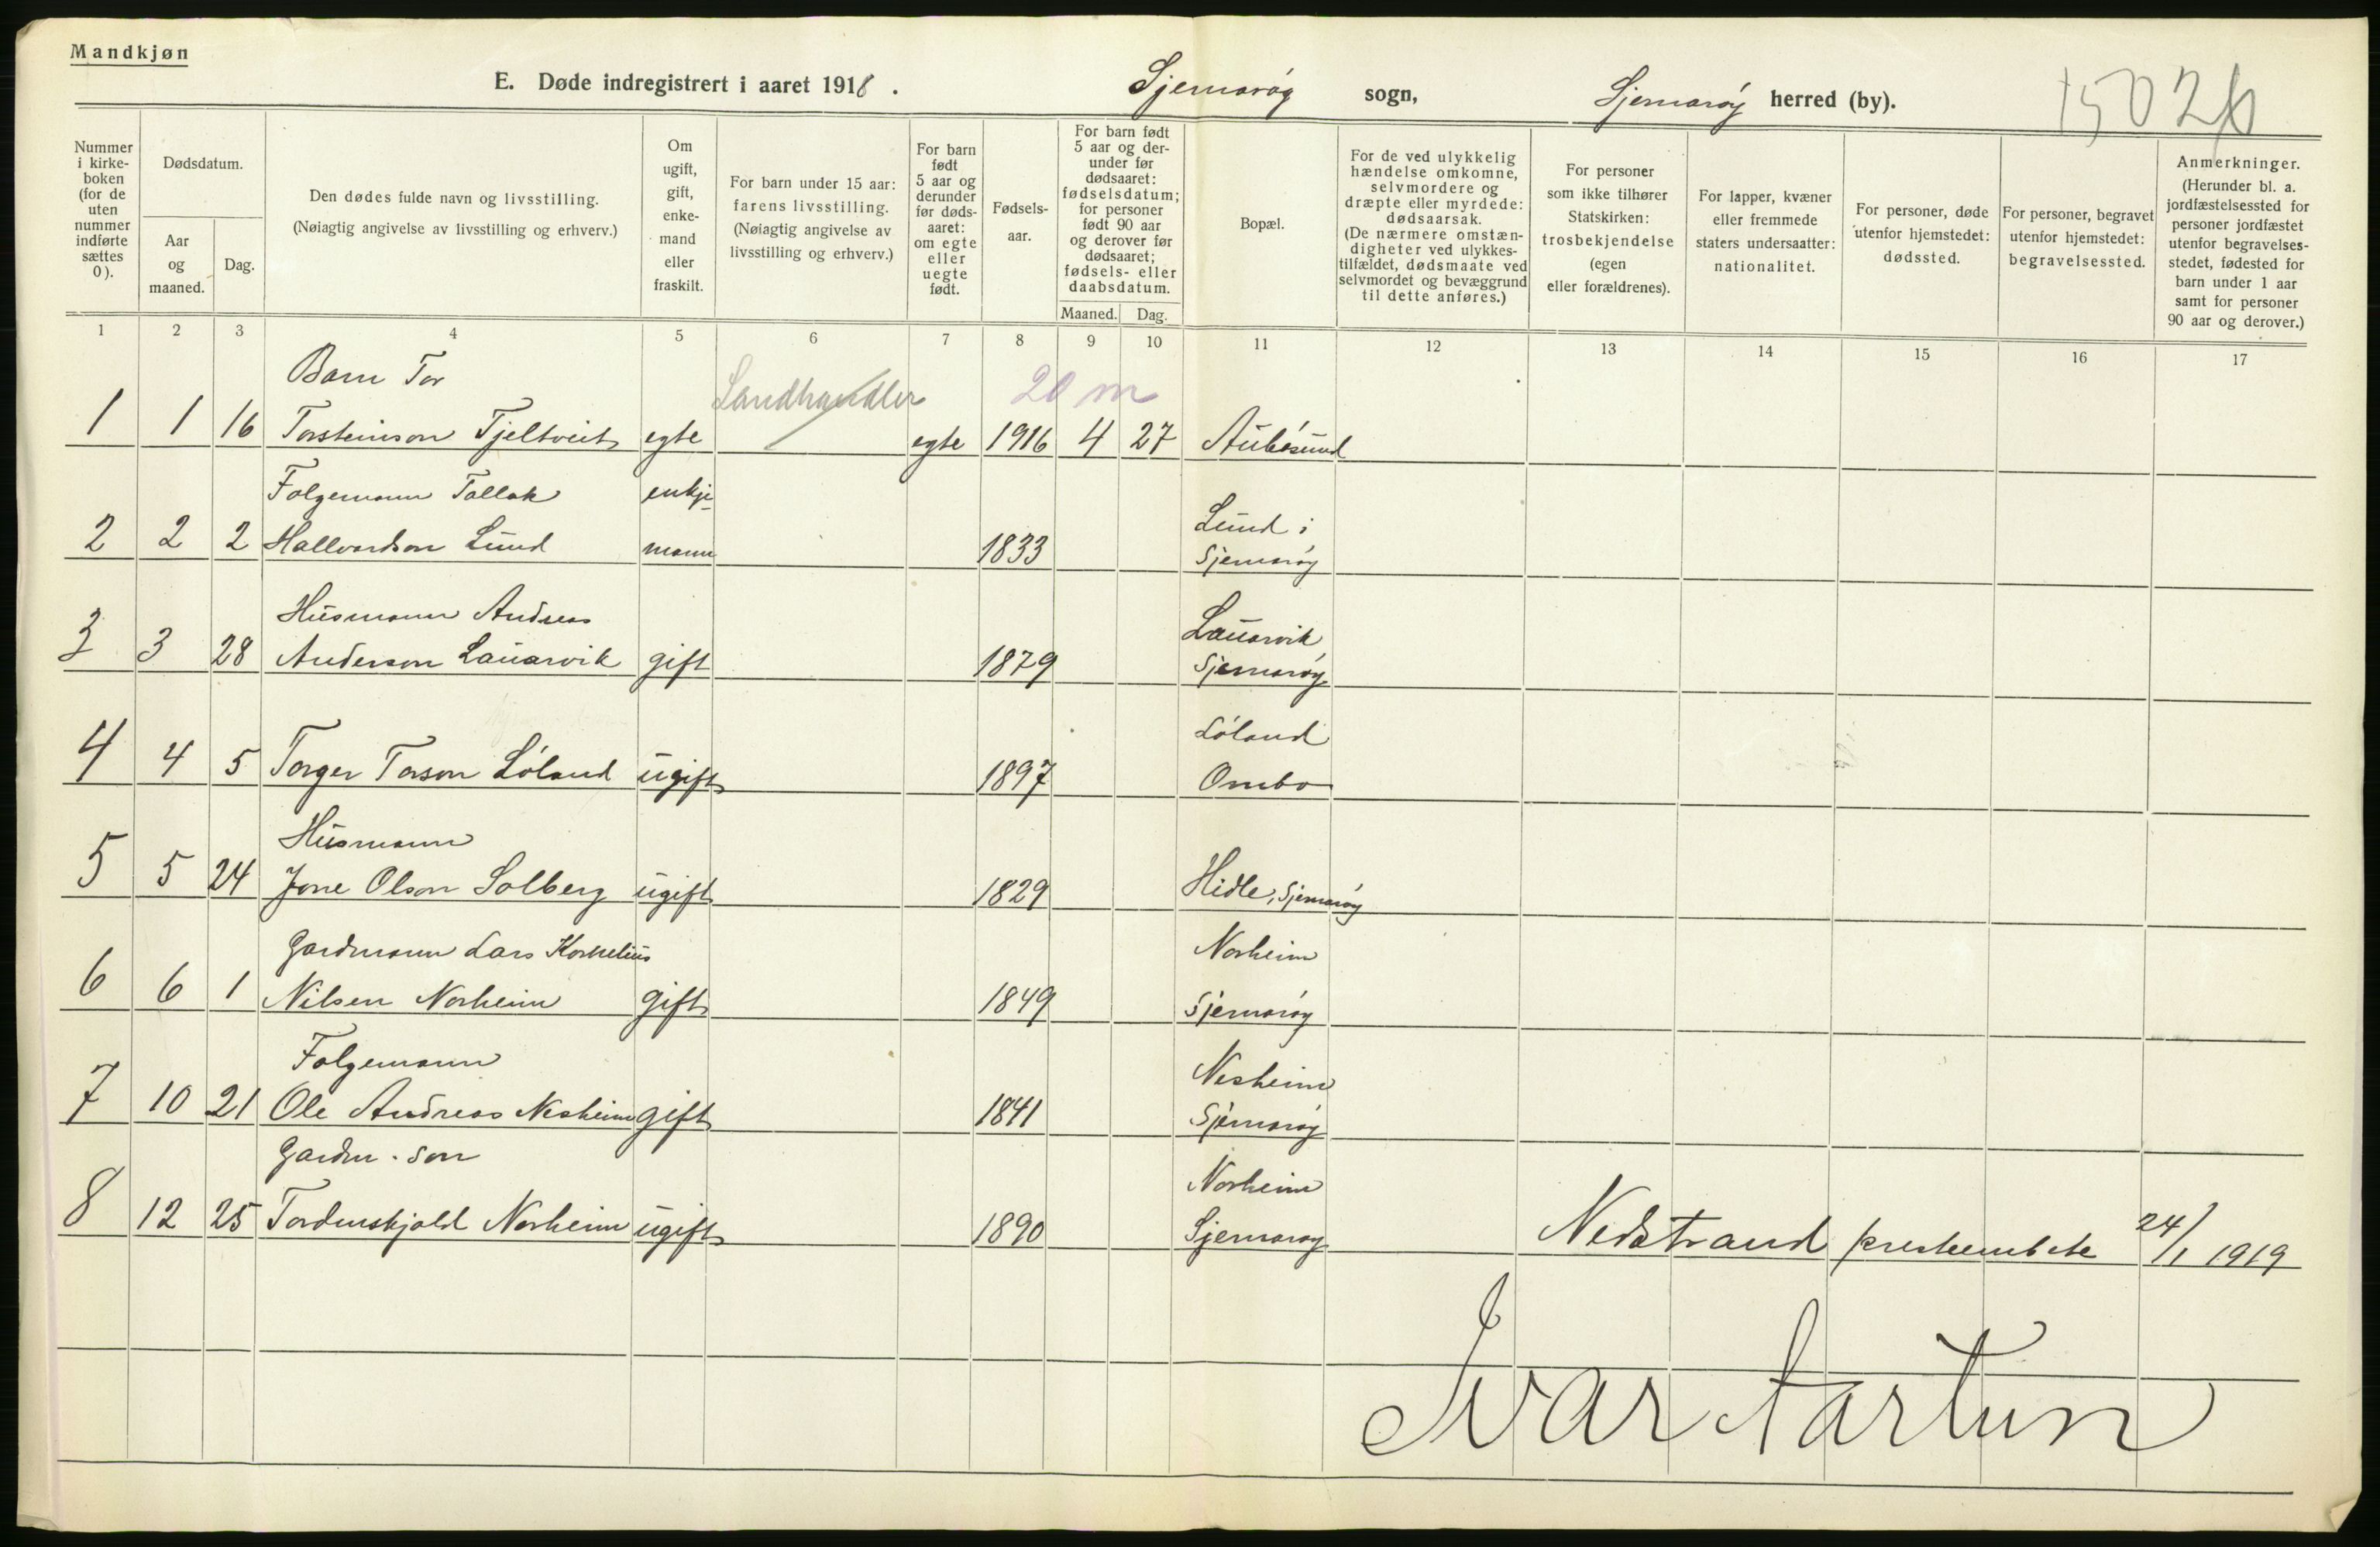 Mandkjøn
E. Døde indregistrert i aaret 1918. Sjernarøy sogn, Sjernarøy herred (by).
Nummer i kirkeboken (for de uten nummer indførte sættes 0).
Dødsdatum.
Aar og maaned.
Dag.
Den dødes fulde navn og livsstilling.
(Nøiagtig angivelse av livsstilling og erhverv.)
Om ugift, gift, enkemand eller fraskilt.
For barn under 15 aar: farens livsstilling.
(Nøiagtig angivelse av livsstilling og erhverv.)
For barn født 5 aar og derunder før dødsaaret: om egte eller uegte født.
Fødselsaar.
For barn født 5 aar og derunder før dødsaaret: fødselsdatum; for personer født 90 aar og derover før dødsaaret; fødsels- eller daabsdatum.
Maaned. Dag.
Bopæl.
For de ved ulykkelig hændelse omkomne, selvmordere og dræpte eller myrdede: dødsaarsak.
(De nærmere omstændigheter ved ulykkestilfældet, dødsmaate ved selvmordet og bevæggrund til dette anføres.)
For personer som ikke tilhører Statskirken: trosbekjendelse (egen eller forældrenes).
For lapper, kvæner eller fremmede staters undersaatter: nationalitet.
For personer, døde utenfor hjemstedet: dødssted.
For personer, begravet utenfor hjemstedet: begravelsessted.
Anmerkninger.
(Herunder bl. a. jordfæstelsessted for personer jordfæstet utenfor begravelsesstedet, fødested for barn under 1 aar samt for personer 90 aar og derover.)
1 2 3 4 5 6 7 8 9 10 11 12 13 14 15 16 17
Barn Tor Landhandler 20 m
1 1 16 Torsteinson Tjeltveit egte egte 1916 4 27 Aubøsund
Folgemann Tallak enkje-
Lund i
2 2 2 Hallvardson Lund mann 1833 Sjernarøy
Husmann Andreas Lauarvik
3 3 28 Anderson Lauarvik gift 1879 Sjernarøy
Løland
4 4 5 Torger Torson Løland ugift 1897 Ombo
Husmann
5 5 24 Jone Olson Solberg ugift 1829 Hidle, Sjernarøy
Gardmann Lars Kornelius Norheim
6 6 1 Nilsen Norheim gift 1849 Sjernarøy
Folgemann Nesheim
7 10 21 Ole Andreas Nesheim gift 1841 Sjernarøy
Gardm. son Norheim
8 12 25 Tordenskjold Norheim ugift 1890 Sjernarøy Nedstrand presteembete 24/1 1919
Ivar Aartun